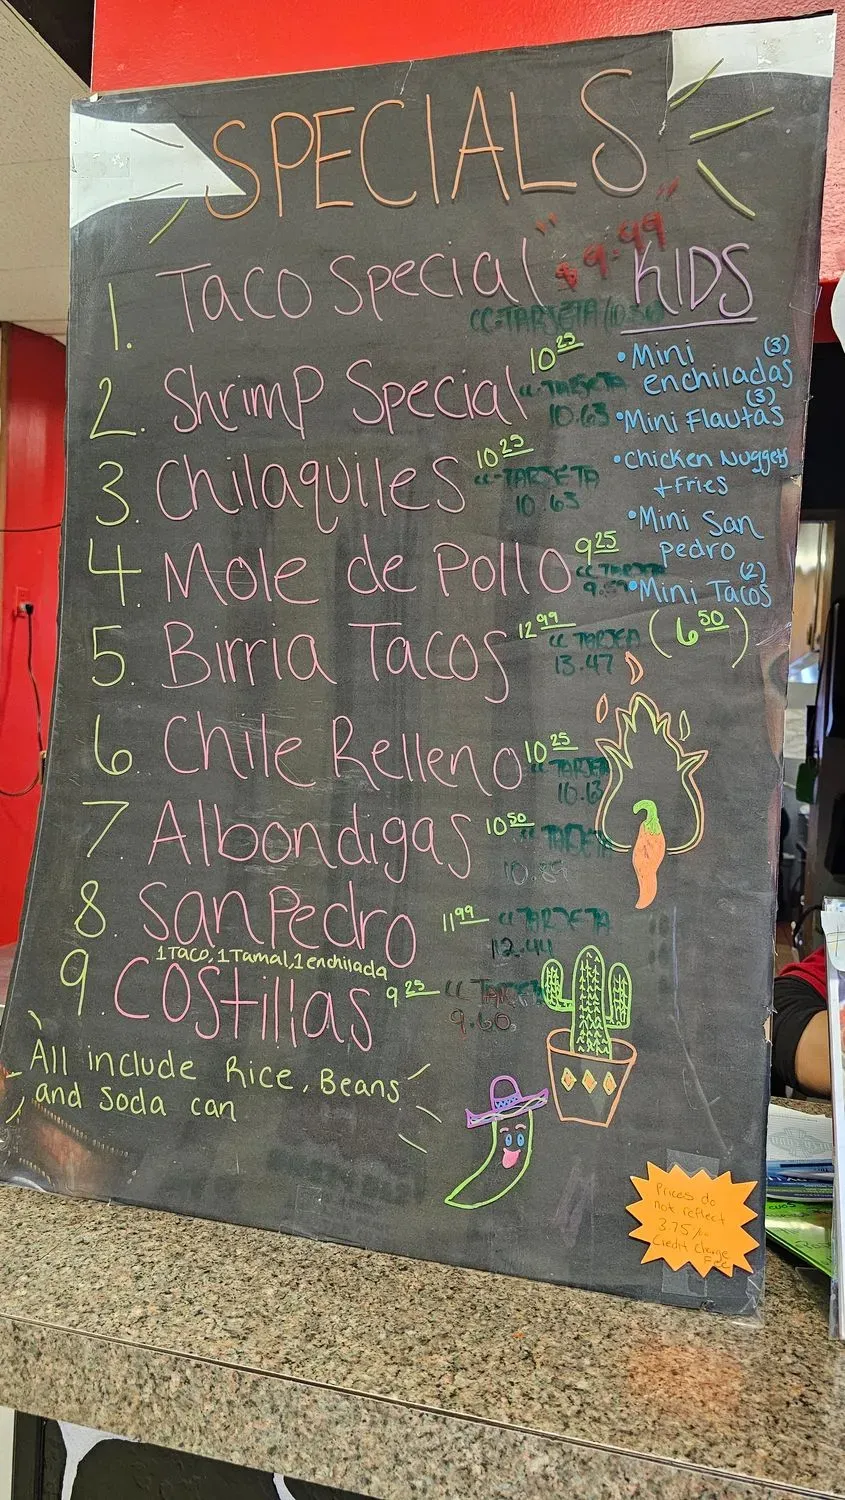 SPECIALS
1. Taco Special "$9.99"
CC-TARJETA/
2. Shrimp Special 10 25
CC-TARJETA
10.63
3. Chilaquiles 10 25
CC-TARJETA
10.63
4. Mole de Pollo 9 25
CC TARJETA
5. Birria Tacos 12 99
CC TARJEA
13.47
6. Chile Relleno 10 25
CC TARJE
10.63
7. Albondigas 10 50
CC TARJETA
10.89
8. San Pedro 11 99
CC TARJETA
12.44
1 Taco, 1 Tamal, 1 enchilada
9. Costillas 9 25
CC TARJET
9.60
All include Rice, Beans
and Soda can
KIDS
• Mini (3)
enchiladas
(3)
• Mini Flautas
• Chicken Nuggets
+ Fries
• Mini San
pedro
(2)
• Mini Tacos
(6 50)
Prices do
not reflect
3.75%
Credit Charge
Fee